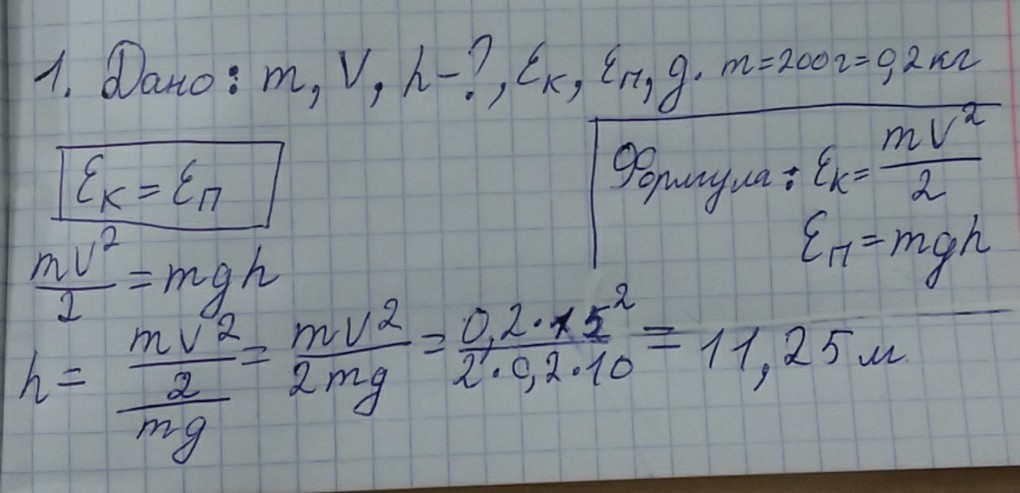 1. Дано: m, V, h-?, Eк, Eп, g. m=200г=0,2кг
Eк = Eп
Формула: Eк = mV²/2
Eп = mgh
mV²/2 = mgh
h = mV²/2/mg = mV²/2mg = 0,2·15²/2·0,2·10 = 11,25 м